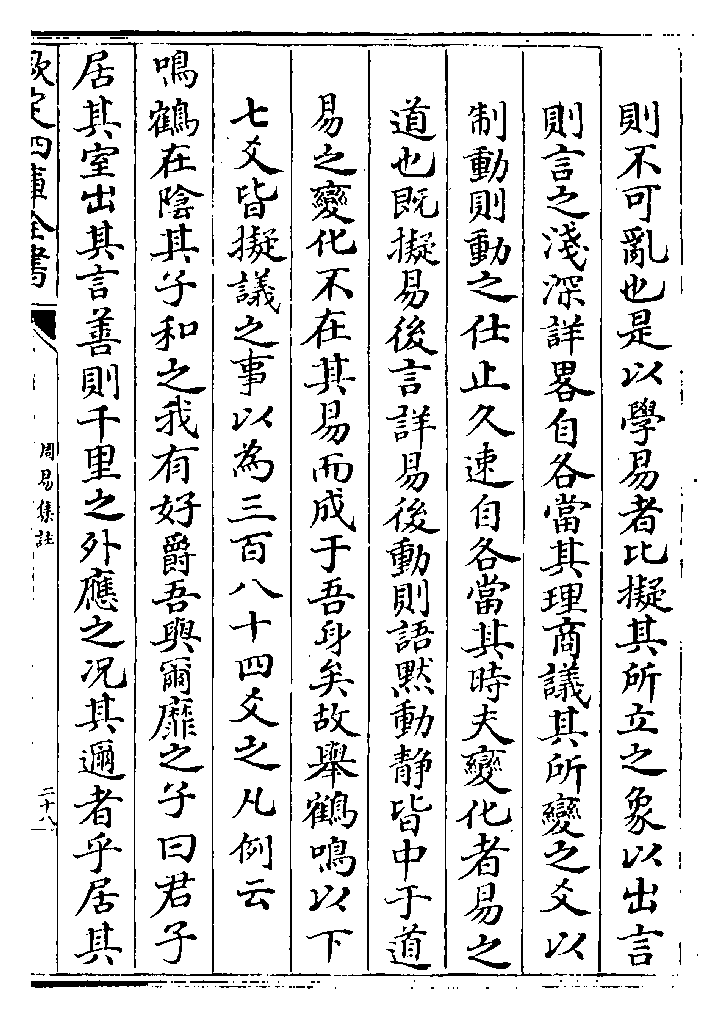 則不可亂也是以學易者比擬其所立之象以出言
則言之淺深詳畧自各當其理商議其所變之爻以
制動則動之仕止久速自各當其時夫變化者易之
道也既擬易後言詳易後動則語黙動靜皆中于道
易之變化不在其易而成于吾身矣故舉鶴鳴以下
七爻皆擬議之事以為三百八十四爻之凡例云
鳴鶴在陰其子和之我有好爵吾與爾靡之子曰君子
居其室出其言善則千里之外應之况其邇者乎居其
欽定四庫全書
周易集註
二十八